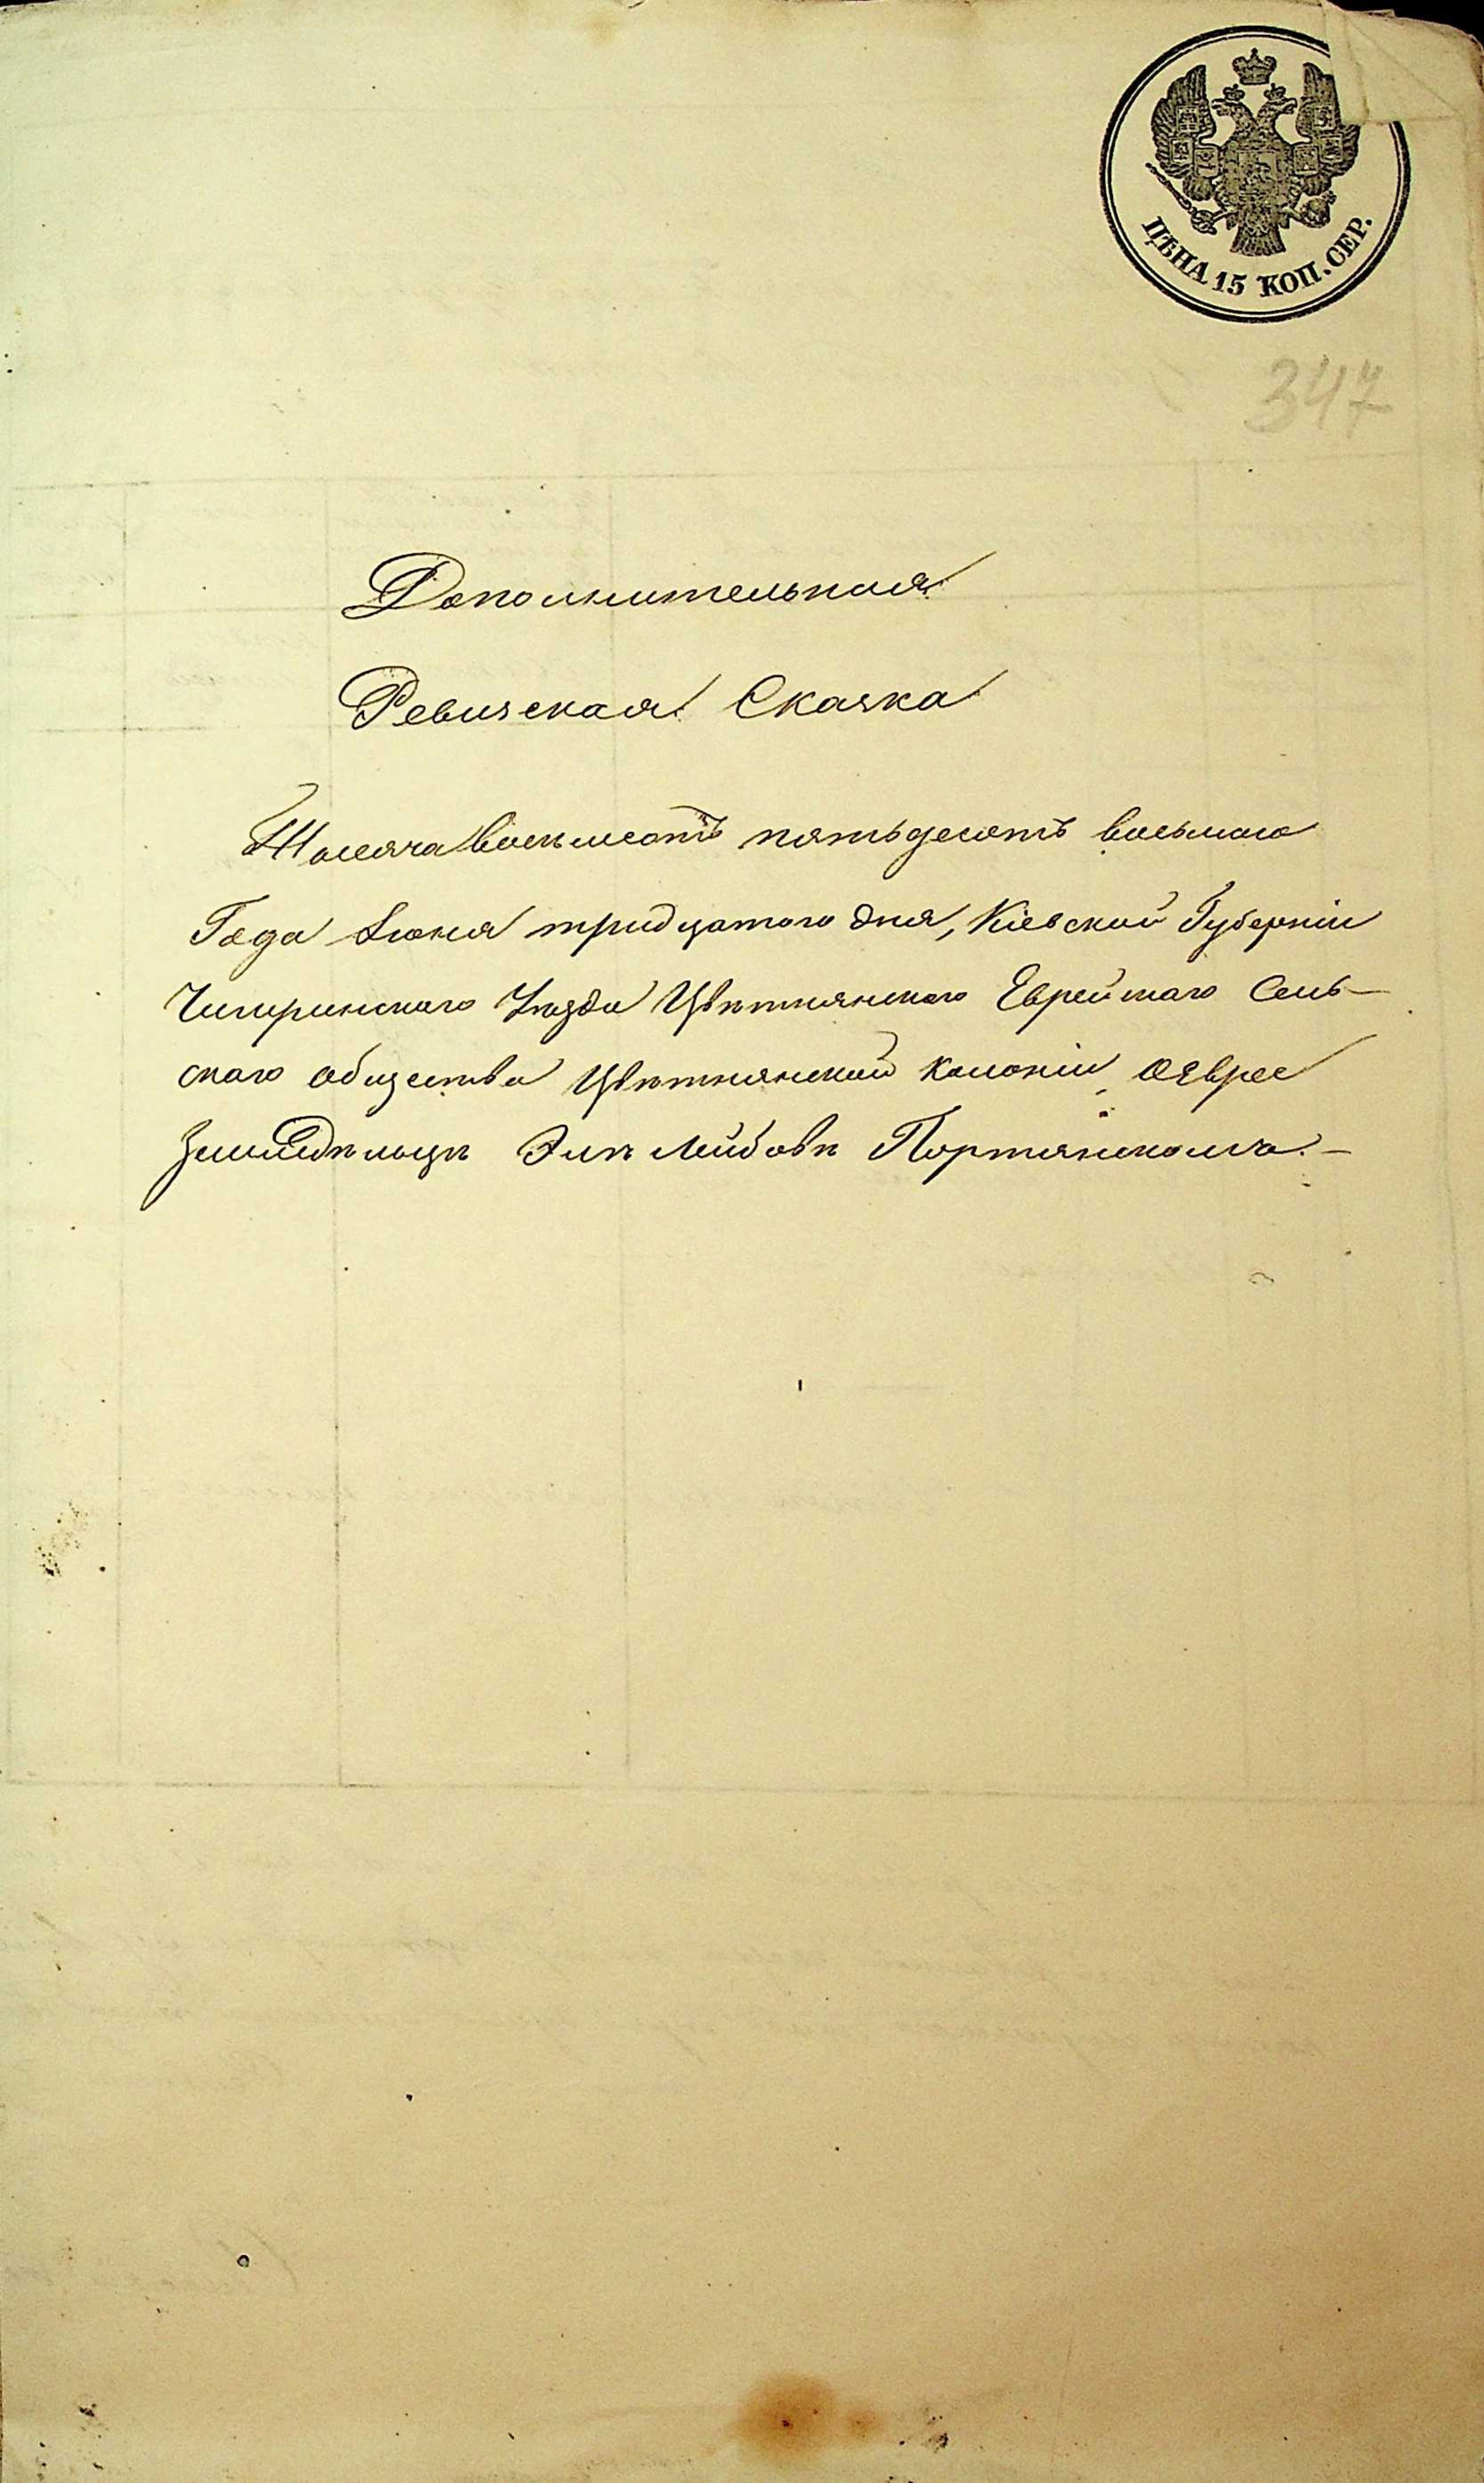 ЦѢНА 15 КОП. СЕР.
347
Дополнительная
Ревизская Сказка
Тысяча восемьсотъ пятьдесятъ восьмаго
Года Июня тридцатого дня, Кіевской Губерніи
Чигиринского Уезда Цвѣтнянского Еврейскаго Сель-
скаго общества Цвѣтнянской Колоніи, о Еврее
Земледѣльцѣ Элѣ Лейбовѣ Портянскомъ.-